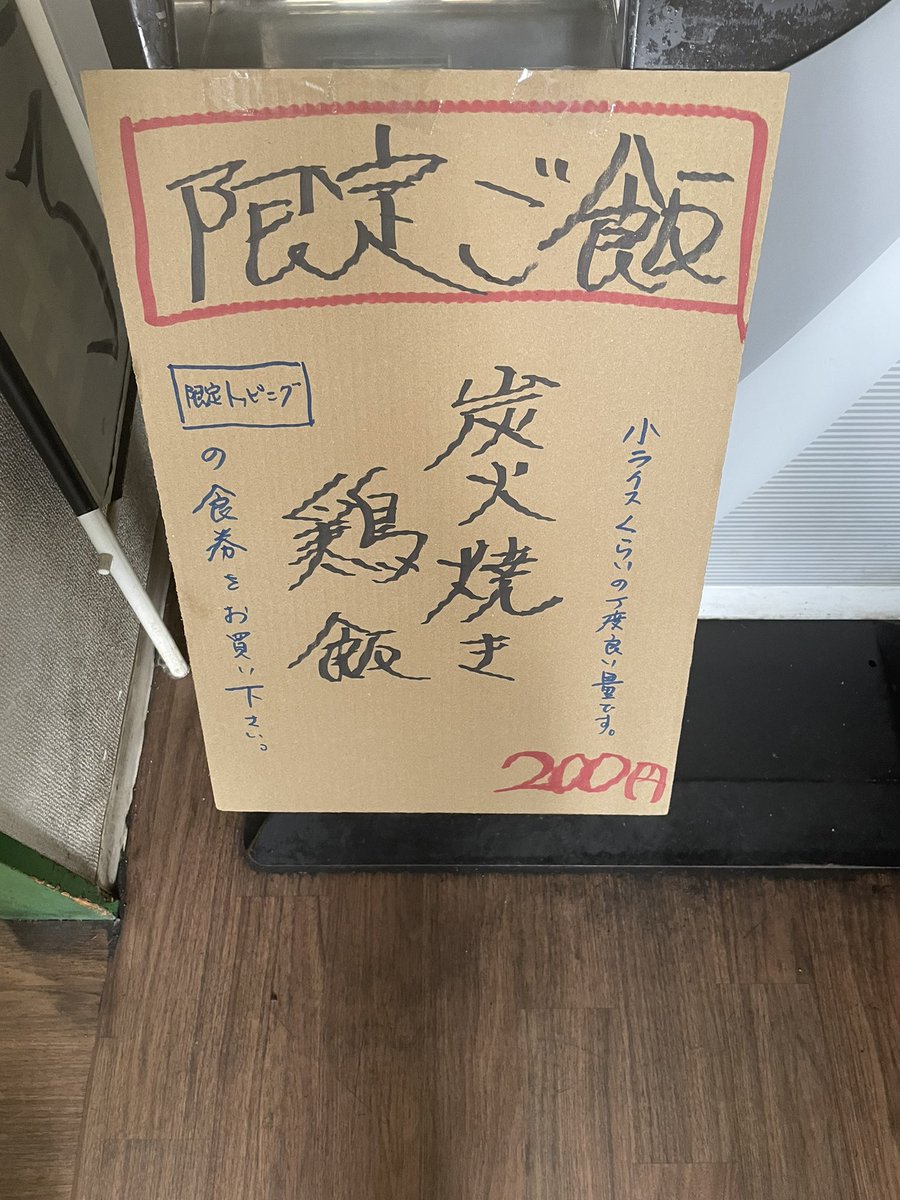 限定ご飯
小ライスくらいの丁度良い量です。
炭火焼き
鶏飯
限定トッピング
の食券をお買い下さい。
200円